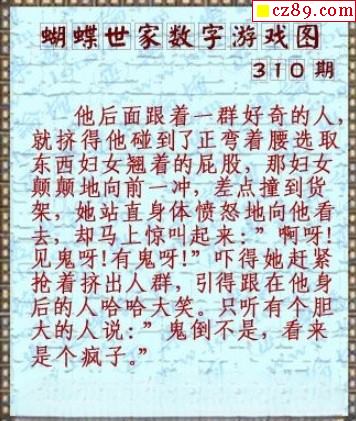 cz89.com
蝴蝶世家数字游戏图
310期
他后面跟着一群好奇的人,
就挤得他碰到了正弯着腰选取
东西妇女翘着的屁股，那妇女
颠颠地向前一冲，差点撞到货
架，她站直身体愤怒地向他看
去，却马上惊叫起来：”啊呀！
见鬼呀！有鬼呀！”吓得她赶紧
抢着挤出人群，引得跟在他身
后的人哈哈大笑。只听有个胆
大的人说：”鬼倒不是，看来
是个疯子。”